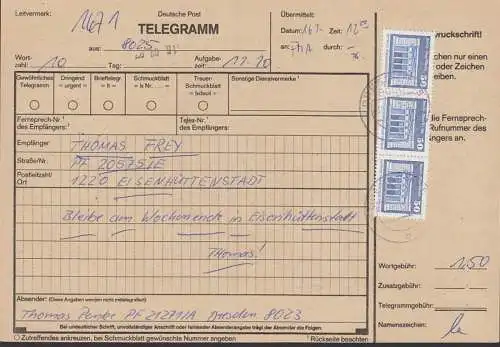 Leitvermerk:
1671
Deutsche Post
TELEGRAMM
aus: 8025
Übermittelt:
Datum: 16/. Zeit: 12
an: durch:
Wort-
zahl: 10 Tag:
Aufgabe-
zeit: 11.20
Gewöhnliches
Telegramm
Dringend
= urgent =
Brieftelegr.
= lt =
Schmuckblatt
= lx Nr. ... =
Trauer-
Schmuckblatt
= lxdeuil =
Sonstige Dienstvermerke
Fernsprech-Nr.
des Empfängers:
Telex-Nr.
des Empfängers:
Empfänger THOMAS FREY
Straße/Nr. PF 20575TE
Postleitzahl/
Ort 1220 EISENHÜTTENSTADT
Bleibe am Wochenende in Eisenhüttenstadt
Thomas!
Absender: (Diese Angaben werden nicht mittelegrafiert)
Thomas PF 21271/A Dresden 8023
Bei unleserlicher Schrift, unvollständiger Anschrift oder fehlender Absenderangabe trägt der Absender die Folgen.
Zutreffendes ankreuzen, bei Schmuckblatt gewünschte Nummer angeben
Rückseite beachten
ruckschrift!
chen nur einen
oder Zeichen
eiben.
die Fernsprech-
Rufnummer des
ngers an.
50
50
50
Wortgebühr: 1,50
Zusatzgebühr:
Telegrammgebühr:
Namenszeichen: